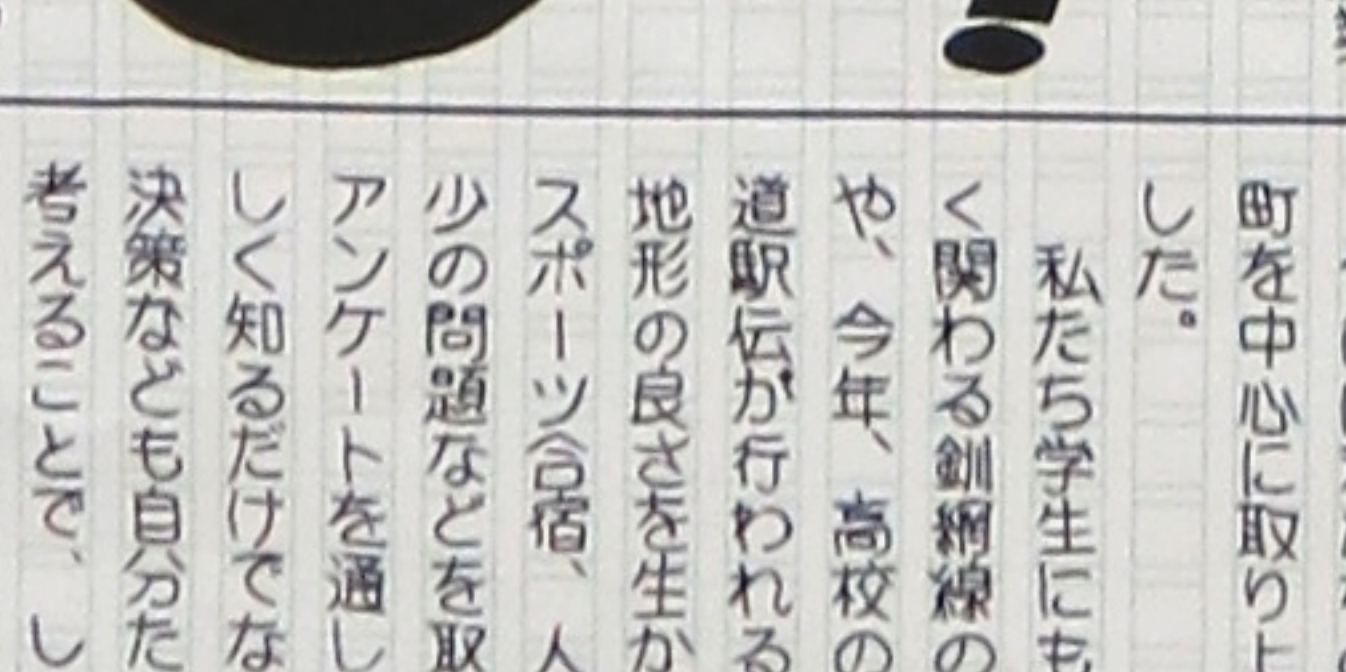 町を中心に取り上
した。
私たち学生にも
く関わる釧網線の
や、今年、高校の
道駅伝が行われる
地形の良さを生か
スポーツ合宿、人
少の問題などを取
アンケートを通し
しく知るだけでな
決策なども自分た
考えることで、し